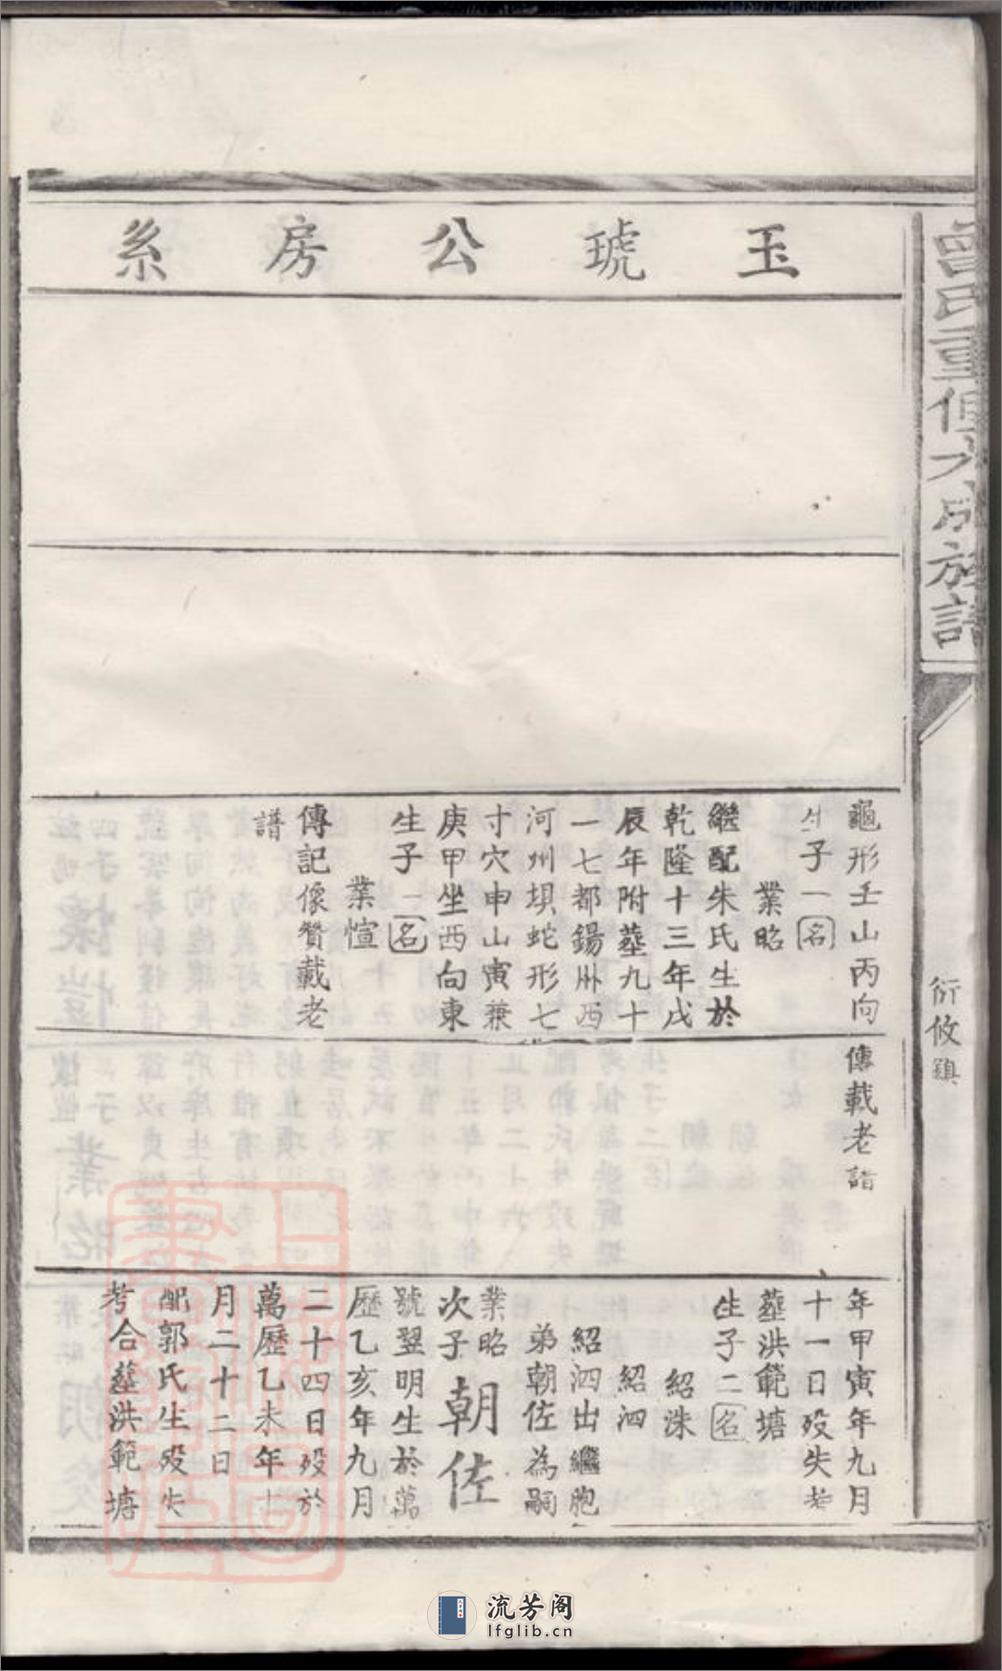 曾氏重修大成族譜
衍攸鎮
玉琥公房系
龜形壬山丙向
生子一名
業昭
繼配朱氏生於
乾隆十三年戊
辰年附墓九十
一七都錫州西
河州垻蛇形七
寸穴申山寅兼
庚甲坐西向東
生子一名
業愃
傳記像贊載老
譜
傳載老譜
年甲寅年九月
十一日歿失考
墓洪範塘
生子二名
紹洙
紹泗
紹泗出繼胞
弟朝佐為嗣
業昭
次子朝佐
號翌明生於萬
歷乙亥年九月
二十四日歿於
萬歷乙未年十
月二十二日
配郭氏生歿失
考合墓洪範塘
流芳阁
lfglib.cn